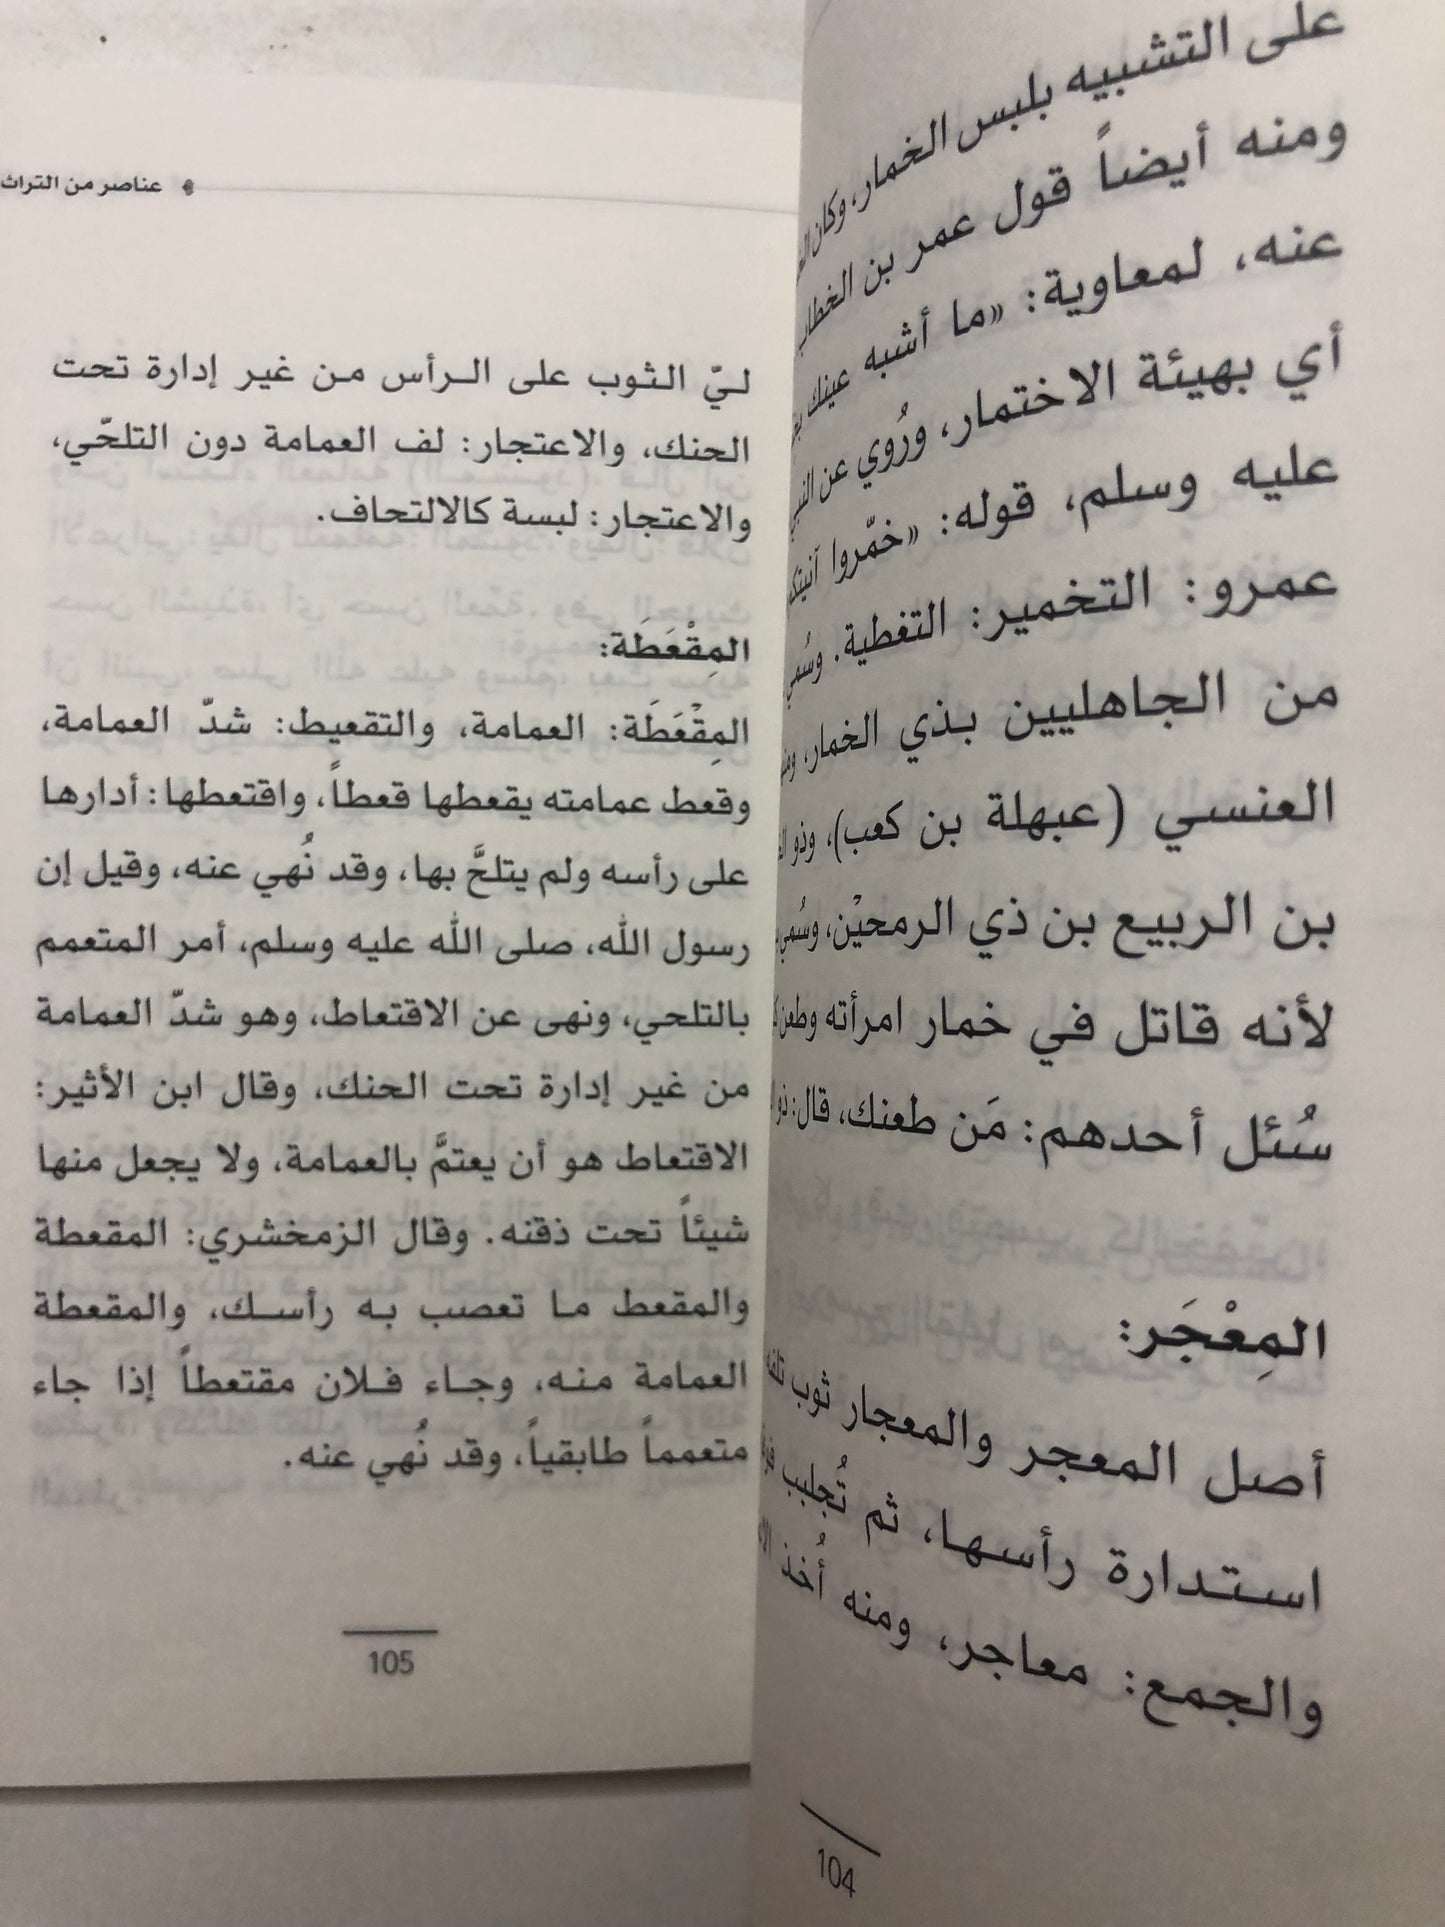 على التشبيه بلبس الخمار، وكان
ومنه أيضاً قول عمر بن الخطاب
عنه، لمعاوية: «ما أشبه عينك
أي بهيئة الاختمار، ورُوي عن النبي
عليه وسلم، قوله: «خمّروا آنيتكم
عمرو: التخمير: التغطية. وسُمي
من الجاهليين بذي الخمار،
العنسي (عبهلة بن كعب)، وذو
بن الربيع بن ذي الرمحيْن، وسُمي
لأنه قاتل في خمار امرأته وطعن
سُئل أحدهم: مَن طعنك، قال: ذو
المِعْجَر:
أصل المعجر والمعجار ثوب تلفه
استدارة رأسها، ثم تُجلبب
والجمع: معاجر، ومنه أُخذ
104
عناصر من التراث
ليّ الثوب على الرأس من غير إدارة تحت
الحنك، والاعتجار: لف العمامة دون التلحّي،
والاعتجار: لبسة كالالتحاف.
المِقْعَطَة:
المِقْعَطَة: العمامة، والتقعيط: شدّ العمامة،
وقعط عمامته يقعطها قعطاً، واقتعطها: أدارها
على رأسه ولم يتلحَّ بها، وقد نُهي عنه، وقيل إن
رسول الله، صلى الله عليه وسلم، أمر المتعمم
بالتلحي، ونهى عن الاقتعاط، وهو شدّ العمامة
من غير إدارة تحت الحنك، وقال ابن الأثير:
الاقتعاط هو أن يعتمَّ بالعمامة، ولا يجعل منها
شيئاً تحت ذقنه. وقال الزمخشري: المقعطة
والمقعط ما تعصب به رأسك، والمقعطة
العمامة منه، وجاء فلان مقتعطاً إذا جاء
متعمماً طابقياً، وقد نُهي عنه.
105